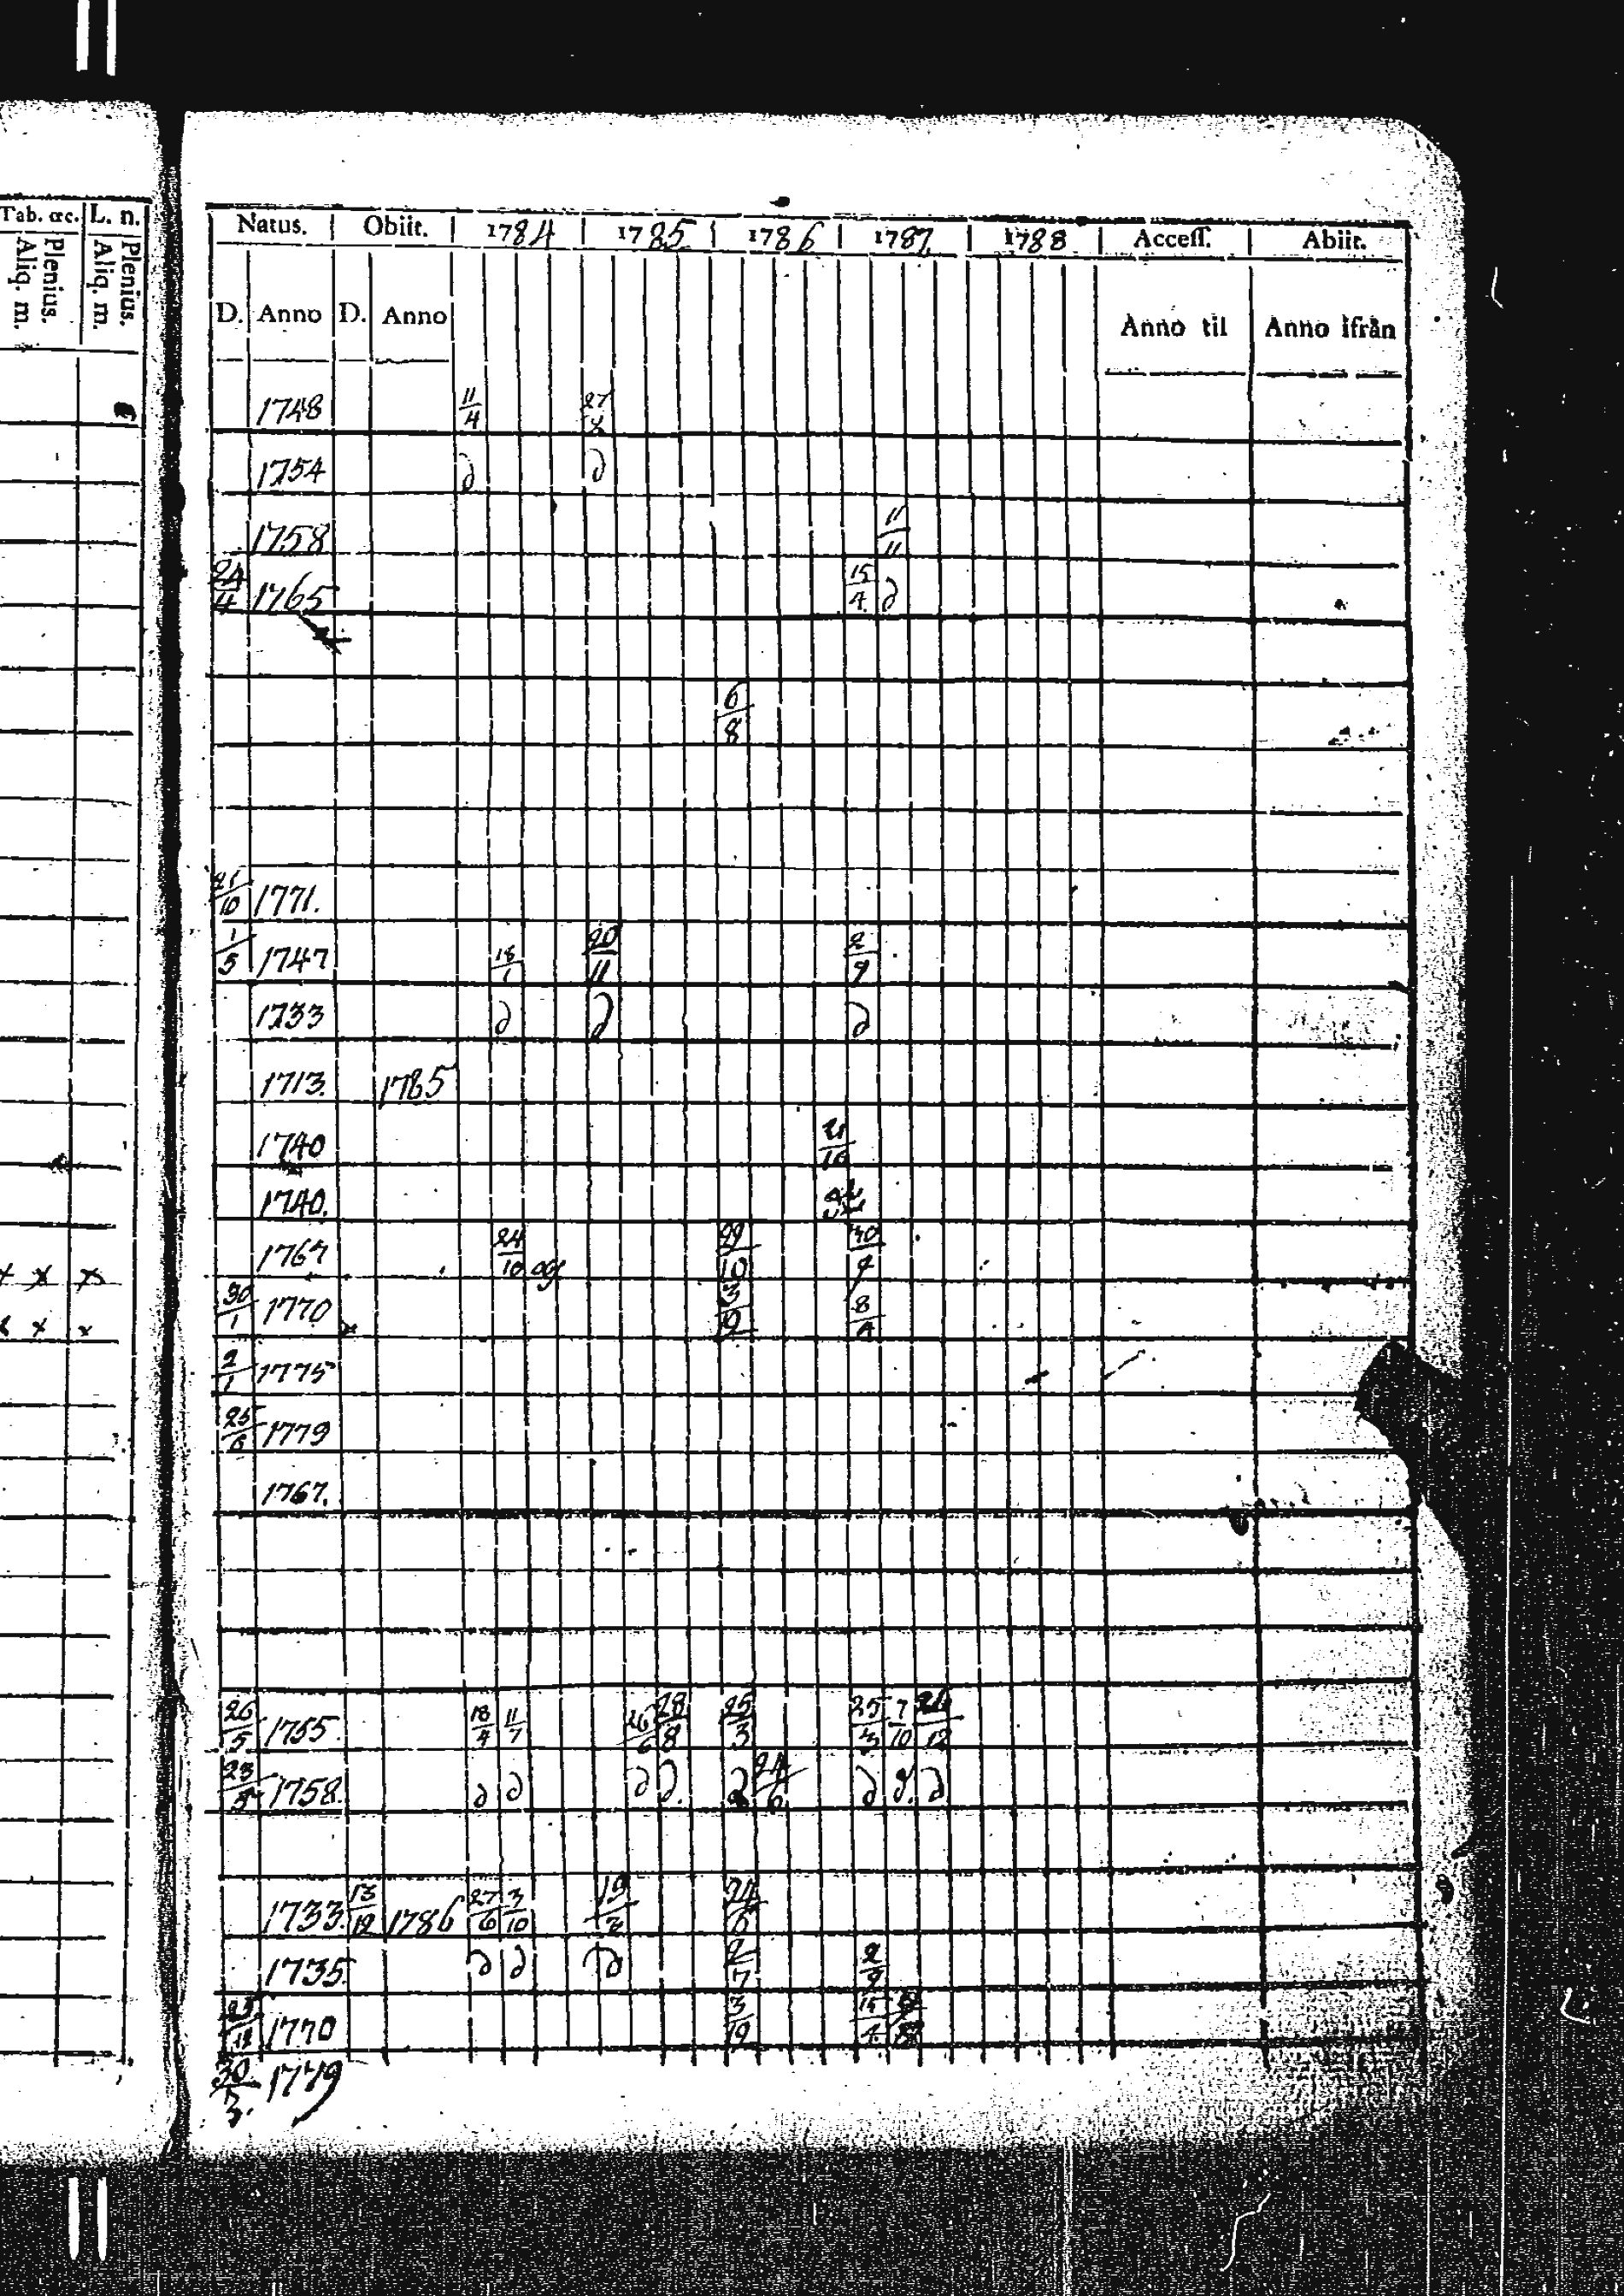 Tab. œc. L. n.
Plenius. Aliq. m. Plenius. Aliq. m.
Natus. Obiit. 1784 1785 1786 1787 1788 Access. Abiit.
D. Anno D. Anno Anno til Anno ifrån
1748 11/4 27/8
1754 d d
1758 11/11
24/4 1765 15/4 d
6/8
21/10 1771.
1/5 1747 18/1 20/11 2/9
1733 d d d
1713. 1785
1740 21/10
1740.
1767 24/10 29/10 30/9
30/1 1770 3/9 8/4
x x x
2/1 1775
x x x
25/6 1779
1767.
26/5 1755 18/4 11/7 26/6 28/8 25/3 25/3 7/10 26/12
23/5 1758. d d d d. d 24/6 d d. d
1733. 13/12 1786 27/6 3/10 19/3 24/6
1735. d d d 2/7 2/9
1770 3/12 15/4
30/3. 1779